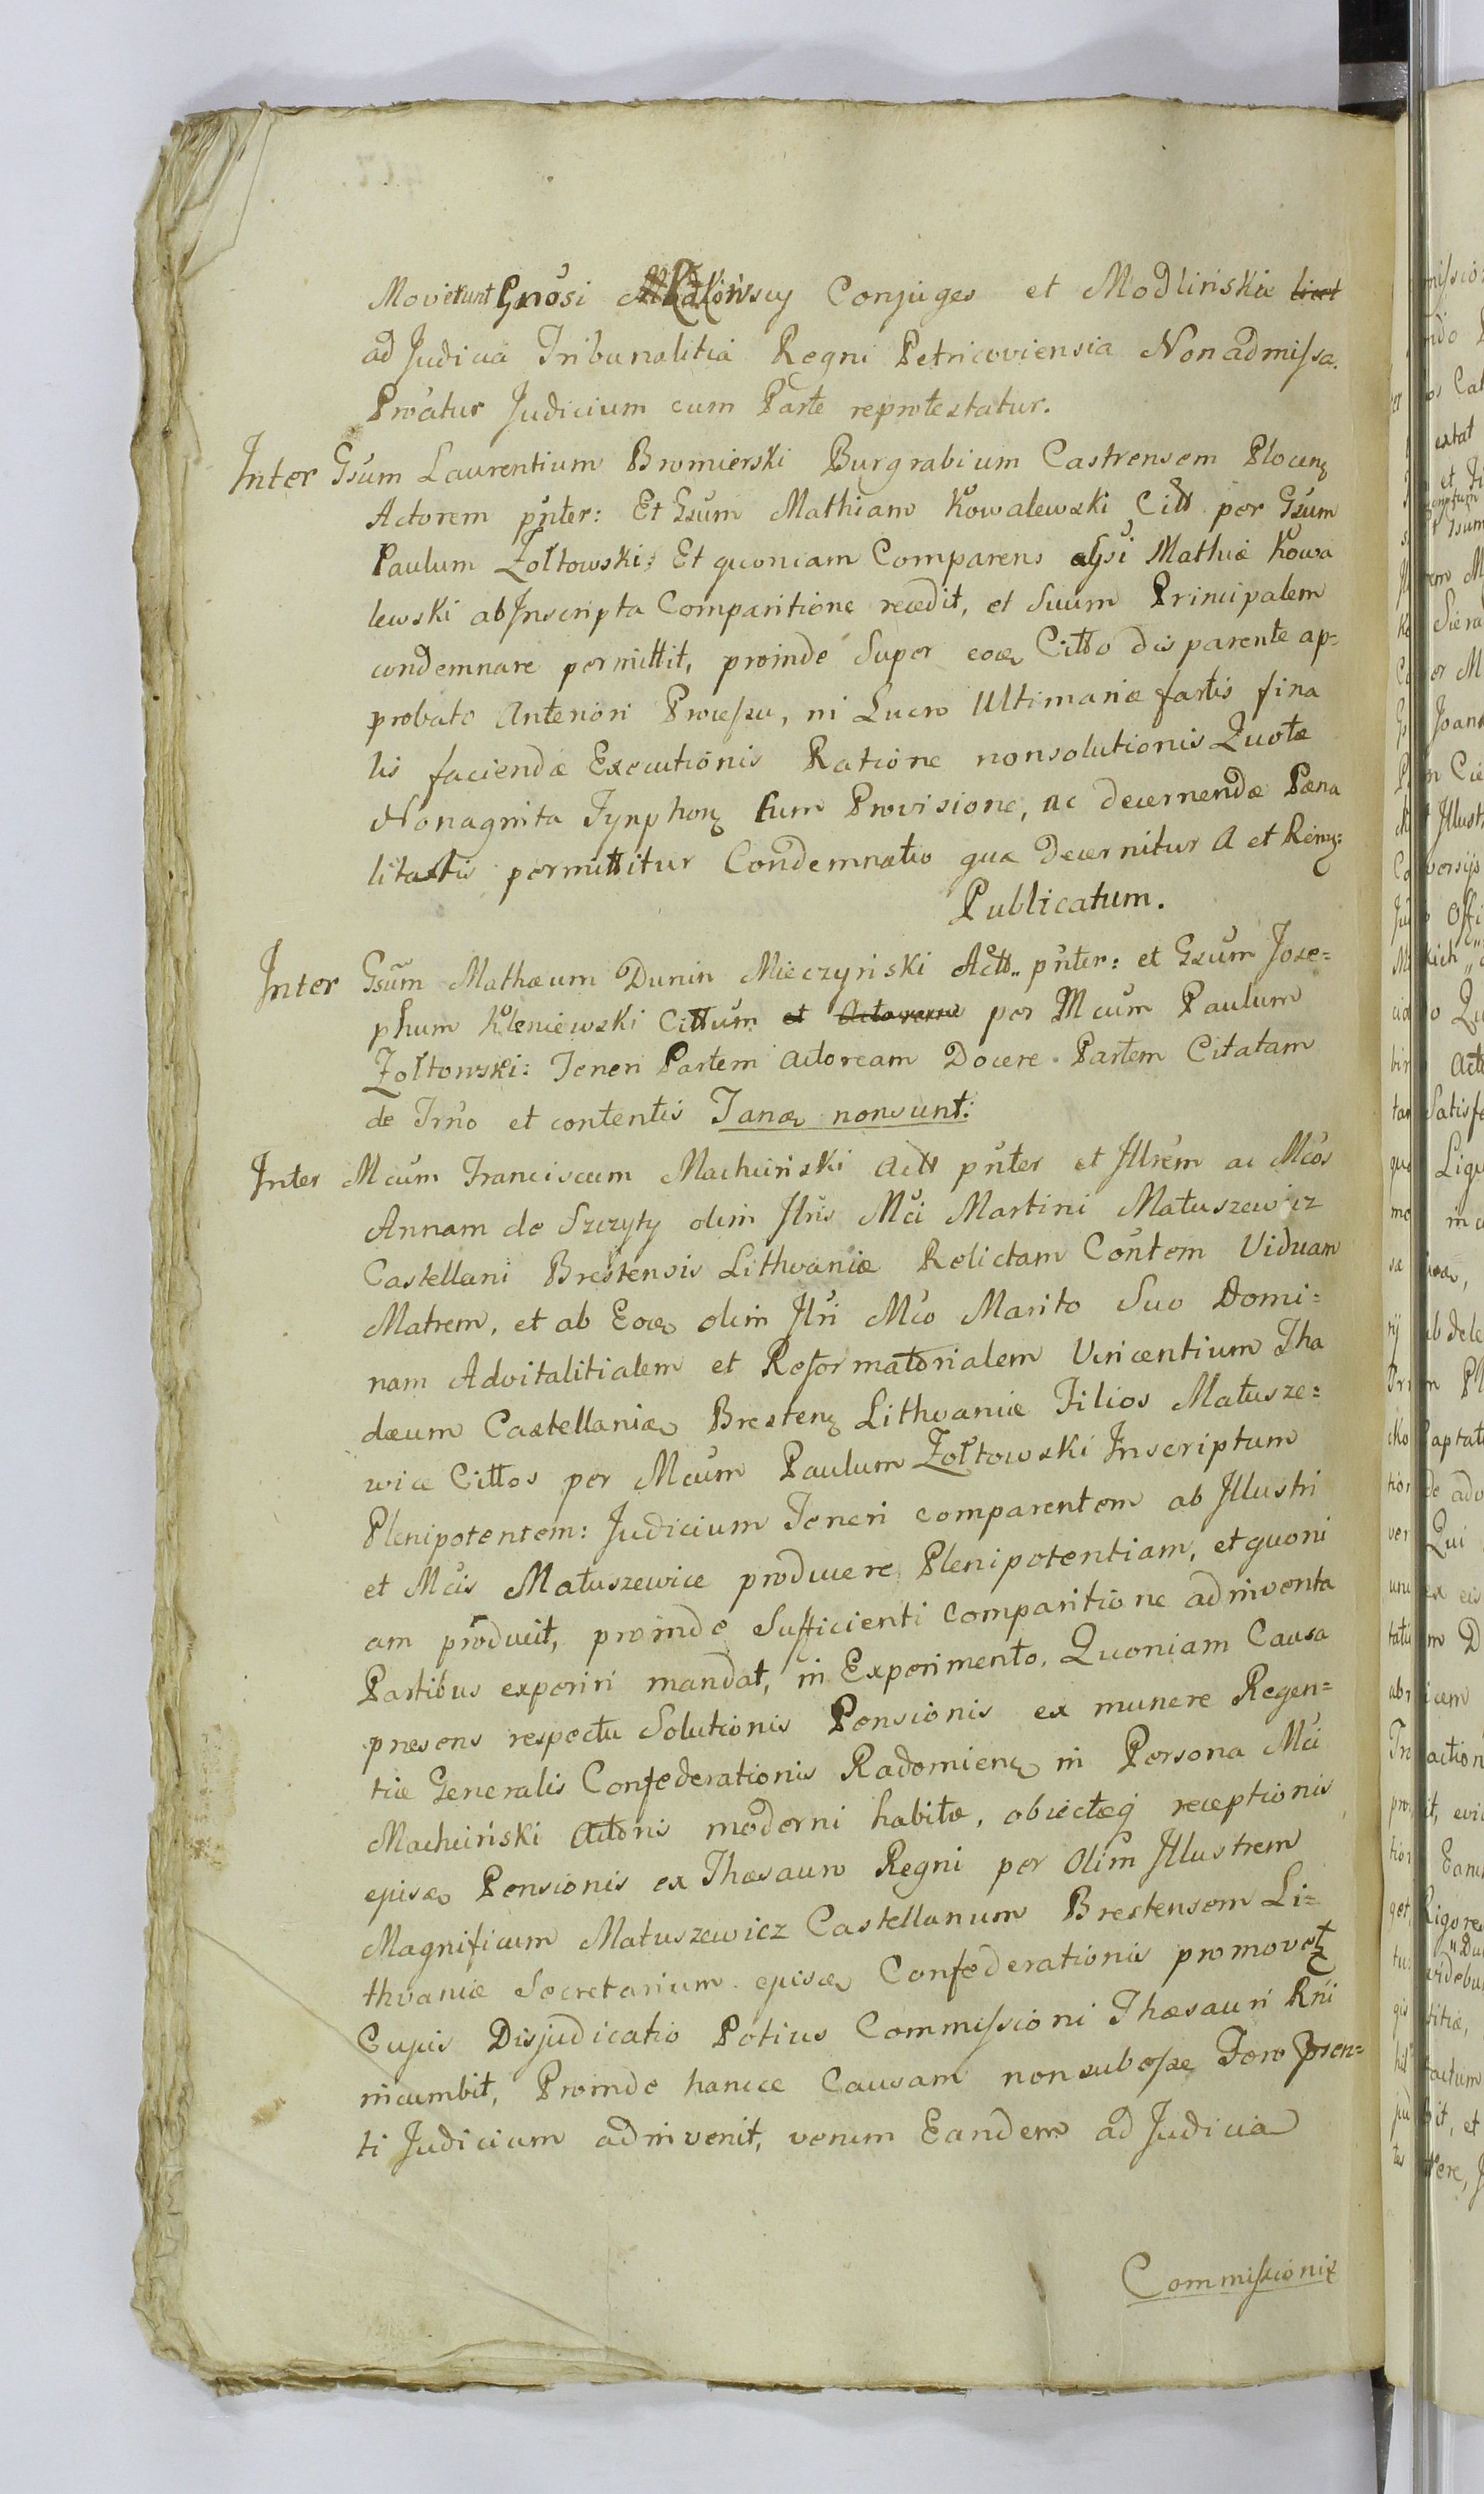 Moverunt Gnosi Conjuges et Modlińskie licet
ad Judicia Tribunalitia Regni Petricoviensia Non admissa.
Proatur Judicium cum Parte reprotestatur.
Inter Gsum Laurentium Bromierski Burgrabium Castrensem Plocen
Actorem pnter: Et Gsum Mathiam Kowalewski Citt per Gsum
Paulum Żołtowski: Et quoniam Comparens Mathiæ Kowa
lewski ab Inscripta Comparitione recedit, et Suum Principalem
condemnare permittit, proinde Super eođ Citto disparente ap=
probato Anteriori Processu, in Lucro Ultimariæ partis fina
lis faciendæ Executionis Ratione nonsolutionis Quotæ
Nonaginta Tynphon cum Provisione, ac decernendæ Pæna
litatis permittitur Condemnatio quæ decernitur A et
Publicatum.
Inter Gsum Mathæum Dunin Mieczyński Actt pnter: et Gsum Jose=
phum Kleniewski Cittum et Actorem per Mcum Paulum
Żołtowski: Teneri Partem actoream Docere Partem Citatam
de Trno et contentis non sunt:
Inter Mcum Franciscum Machciński Actt pnter et Illrem ac Mcos
Annam de Szczyty olim Ilris Mci Martini Matuszewicz
Castellani Brestensis Lithvaniæ Relictam Contem Viduam
Matrem, et ab Eođ olim Ilri Mco Marito Suo Domi=
nam Advitalitialem et Reformatorialem Vincentium Tha
dæum Castellanid Bresten Lithvaniæ Filios Matusze=
wice Cittos per Mcum Paulum Żołtowski Inscriptum
Plenipotentem: Judicium Teneri comparentem ab Illustri
et Mcis Matuszewice producere Plenipotentiam, et quoni
am producit, proinde Sufficienti Comparitione adinventa
Partibus experiri mandat, in Experimento. Quoniam Causa
præsens respectu Solutionis Pensionis ex munere Regen=
tiæ Generalis Confederationis Radomien in Persona Mci
Machciński Actoris moderni habitæ, obiectæq receptionis
ejusđ Pensionis ex Thæsauro Regni per Olim Illustrem
Magnificum Matuszewicz Castellanum Brestensem Li=
thvaniæ Secretarium ejusđ Confederationis promovet
Cujus Disjudicatio Potius Commissioni Thæsauri Rni
incumbit, Proinde hancce Causam non subesse Foro Præn=
ti Judicium adinvenit, verum Eandem ad Judicia
Commissionis